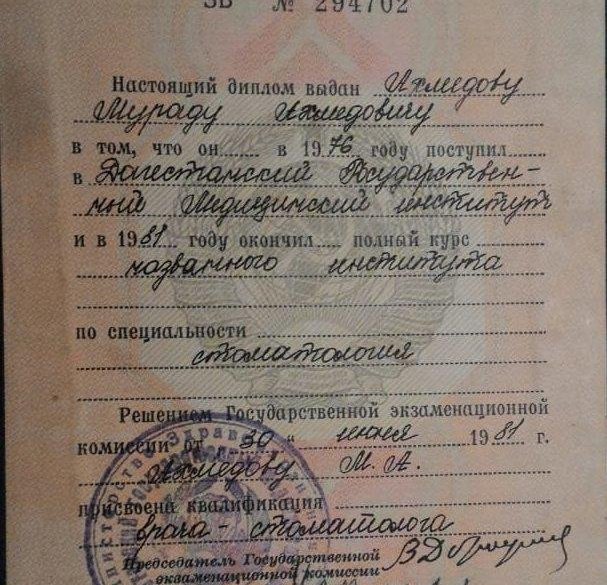 ЗВ № 294702
Настоящий диплом выдан Ахмедову
Мураду Ахмедовичу
в том, что он в 1976 году поступил
в Дагестанский Государствен-
ный Медицинский институт
и в 1981 году окончил полный курс
названного института
по специальности
стоматология
Решением Государственной экзаменационной
комиссии от 30 " июня 1981 г.
Ахмедову М. А.
присвоена квалификация
врача-стоматолога
Председатель Государственной
экзаменационной комиссии